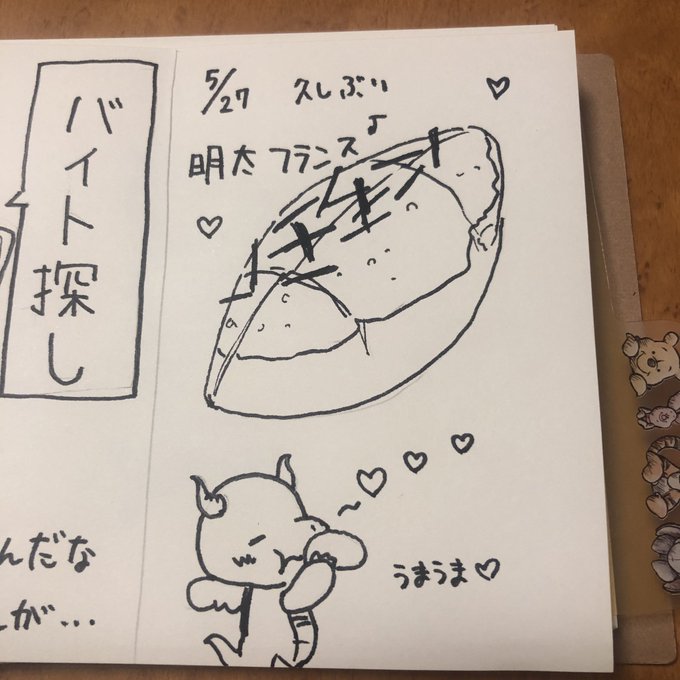 バイト探し
んだな
が...
5/27 久しぶり
明太フランス
うまうま♡